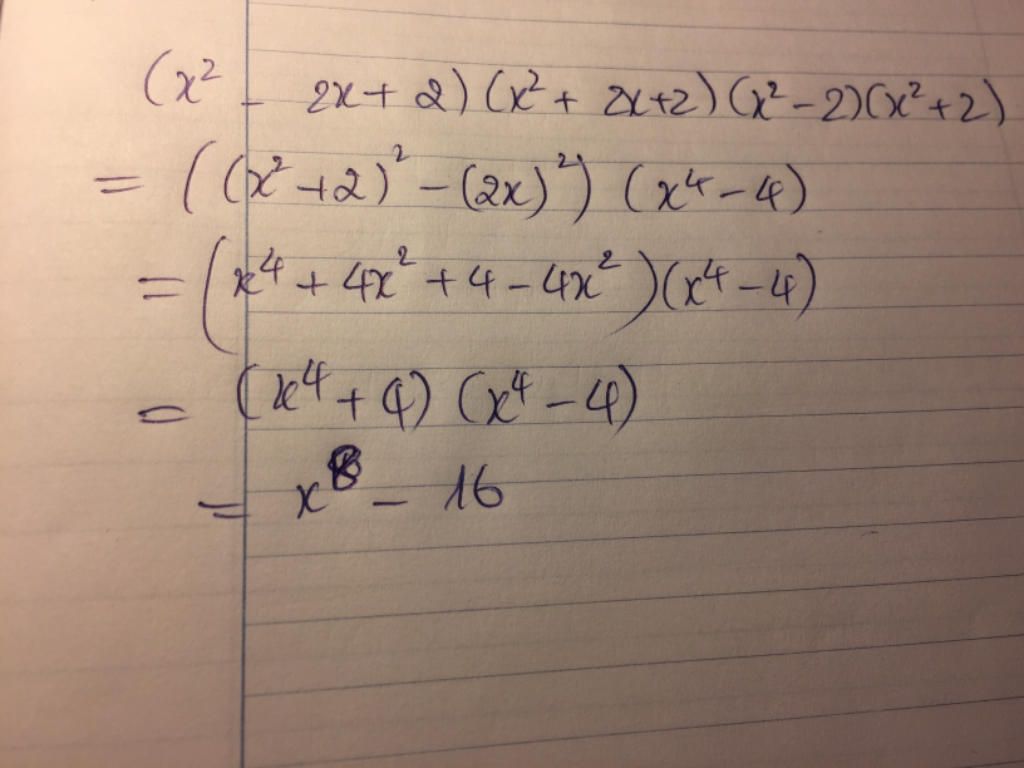 (x² - 2x + 2)(x² + 2x+2)(x² - 2)(x² + 2)
= ((x² + 2)² - (2x)²) (x⁴ - 4)
= (x⁴ + 4x² + 4 - 4x²)(x⁴ - 4)
= (x⁴ + 4) (x⁴ - 4)
= x⁸ - 16